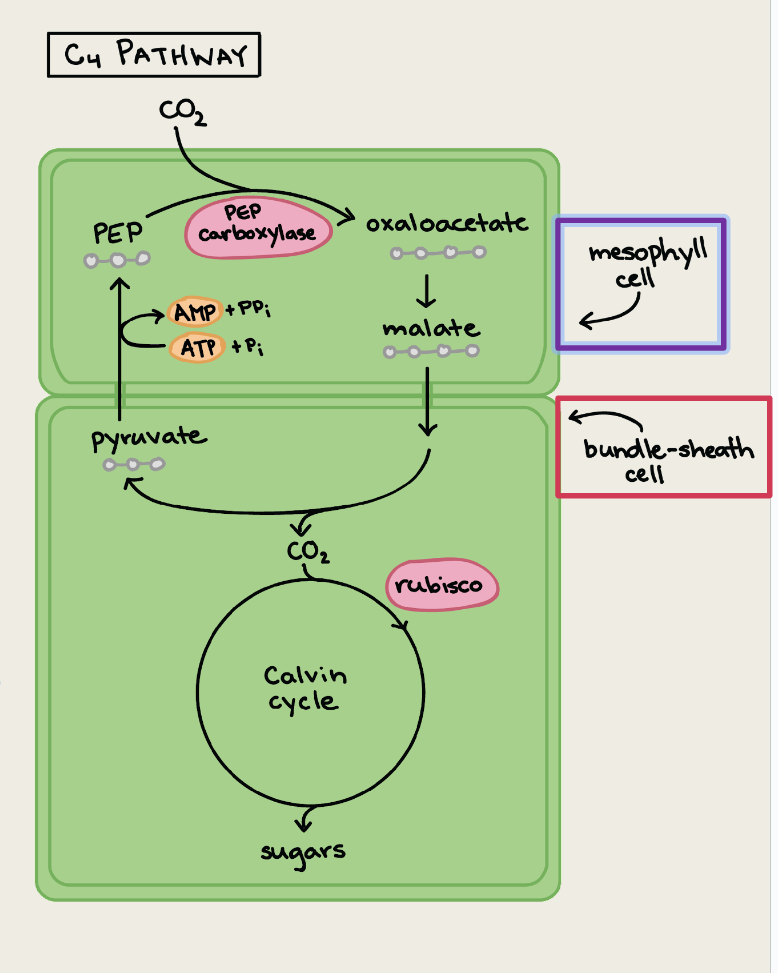 C4 PATHWAY
CO2
PEP
carboxylase
PEP
oxaloacetate
mesophyll
cell
AMP + PPi
ATP + Pi
malate
pyruvate
bundle-sheath
cell
CO2
rubisco
Calvin
cycle
sugars